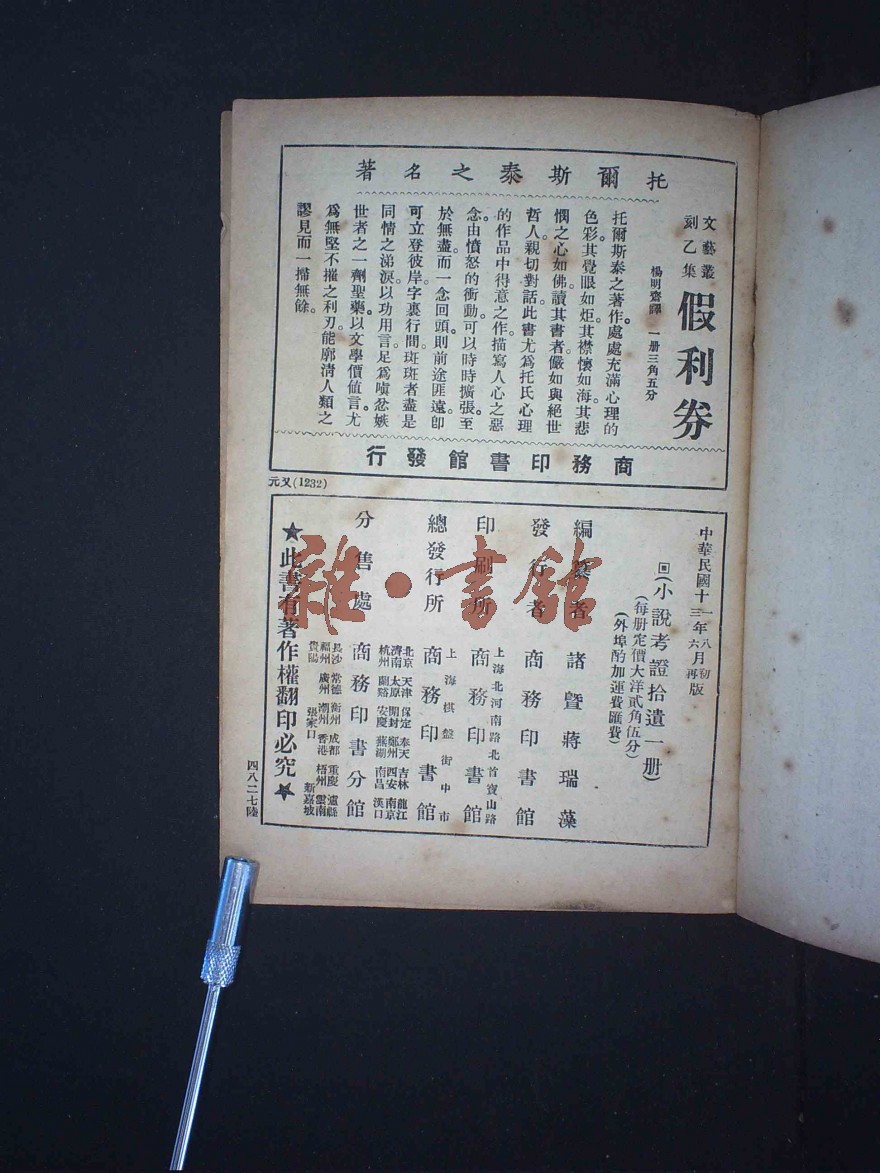 托爾斯泰之名著
文藝叢刻乙集
假利券
楊明齋譯 一册三角五分
托爾斯泰之著作。處處充滿心理的
色彩。其覺眼如炬。其襟懷如海。其悲
憫之心如佛。讀其書者。儼如與絕世
哲人親切對話。此書尤爲托氏心理
的作品中得意之作。描寫人心之惡
念。由憤怒的衝動。可以時時擴張。至
於無盡。而一念回頭。則前途匪遠。卽
可立登彼岸。字裏行間。斑斑者盡是
同情之涕淚。以功用言。足爲嗔忿嫉
世者之一劑聖藥。以文學價値言。尤
爲無堅不摧之利刃。能廓淸人類之
謬見而一掃無餘。
商務印書館發行
元又(1232)
中華民國十一年八月初版
中華民國十三年六月再版
(小說考證拾遺一册)
(每册定價大洋貳角伍分)
(外埠酌加運費匯費)
編纂者 諸暨蔣瑞藻
發行者 商務印書館
印刷所 上海北河南路北首寶山路 商務印書館
總發行所 上海棋盤街中市 商務印書館
分售處 商務印書分館
北京 天津 保定 奉天 吉林 龍江
濟南 太原 開封 鄭州 西安 南京
杭州 蘭谿 安慶 蕪湖 南昌 漢口
長沙 常德 衡州 成都 重慶 瀘縣
福州 廣州 潮州 香港 梧州 雲南
貴陽 張家口 新嘉坡
★此書有著作權翻印必究★
四八二七陸
雜·書館